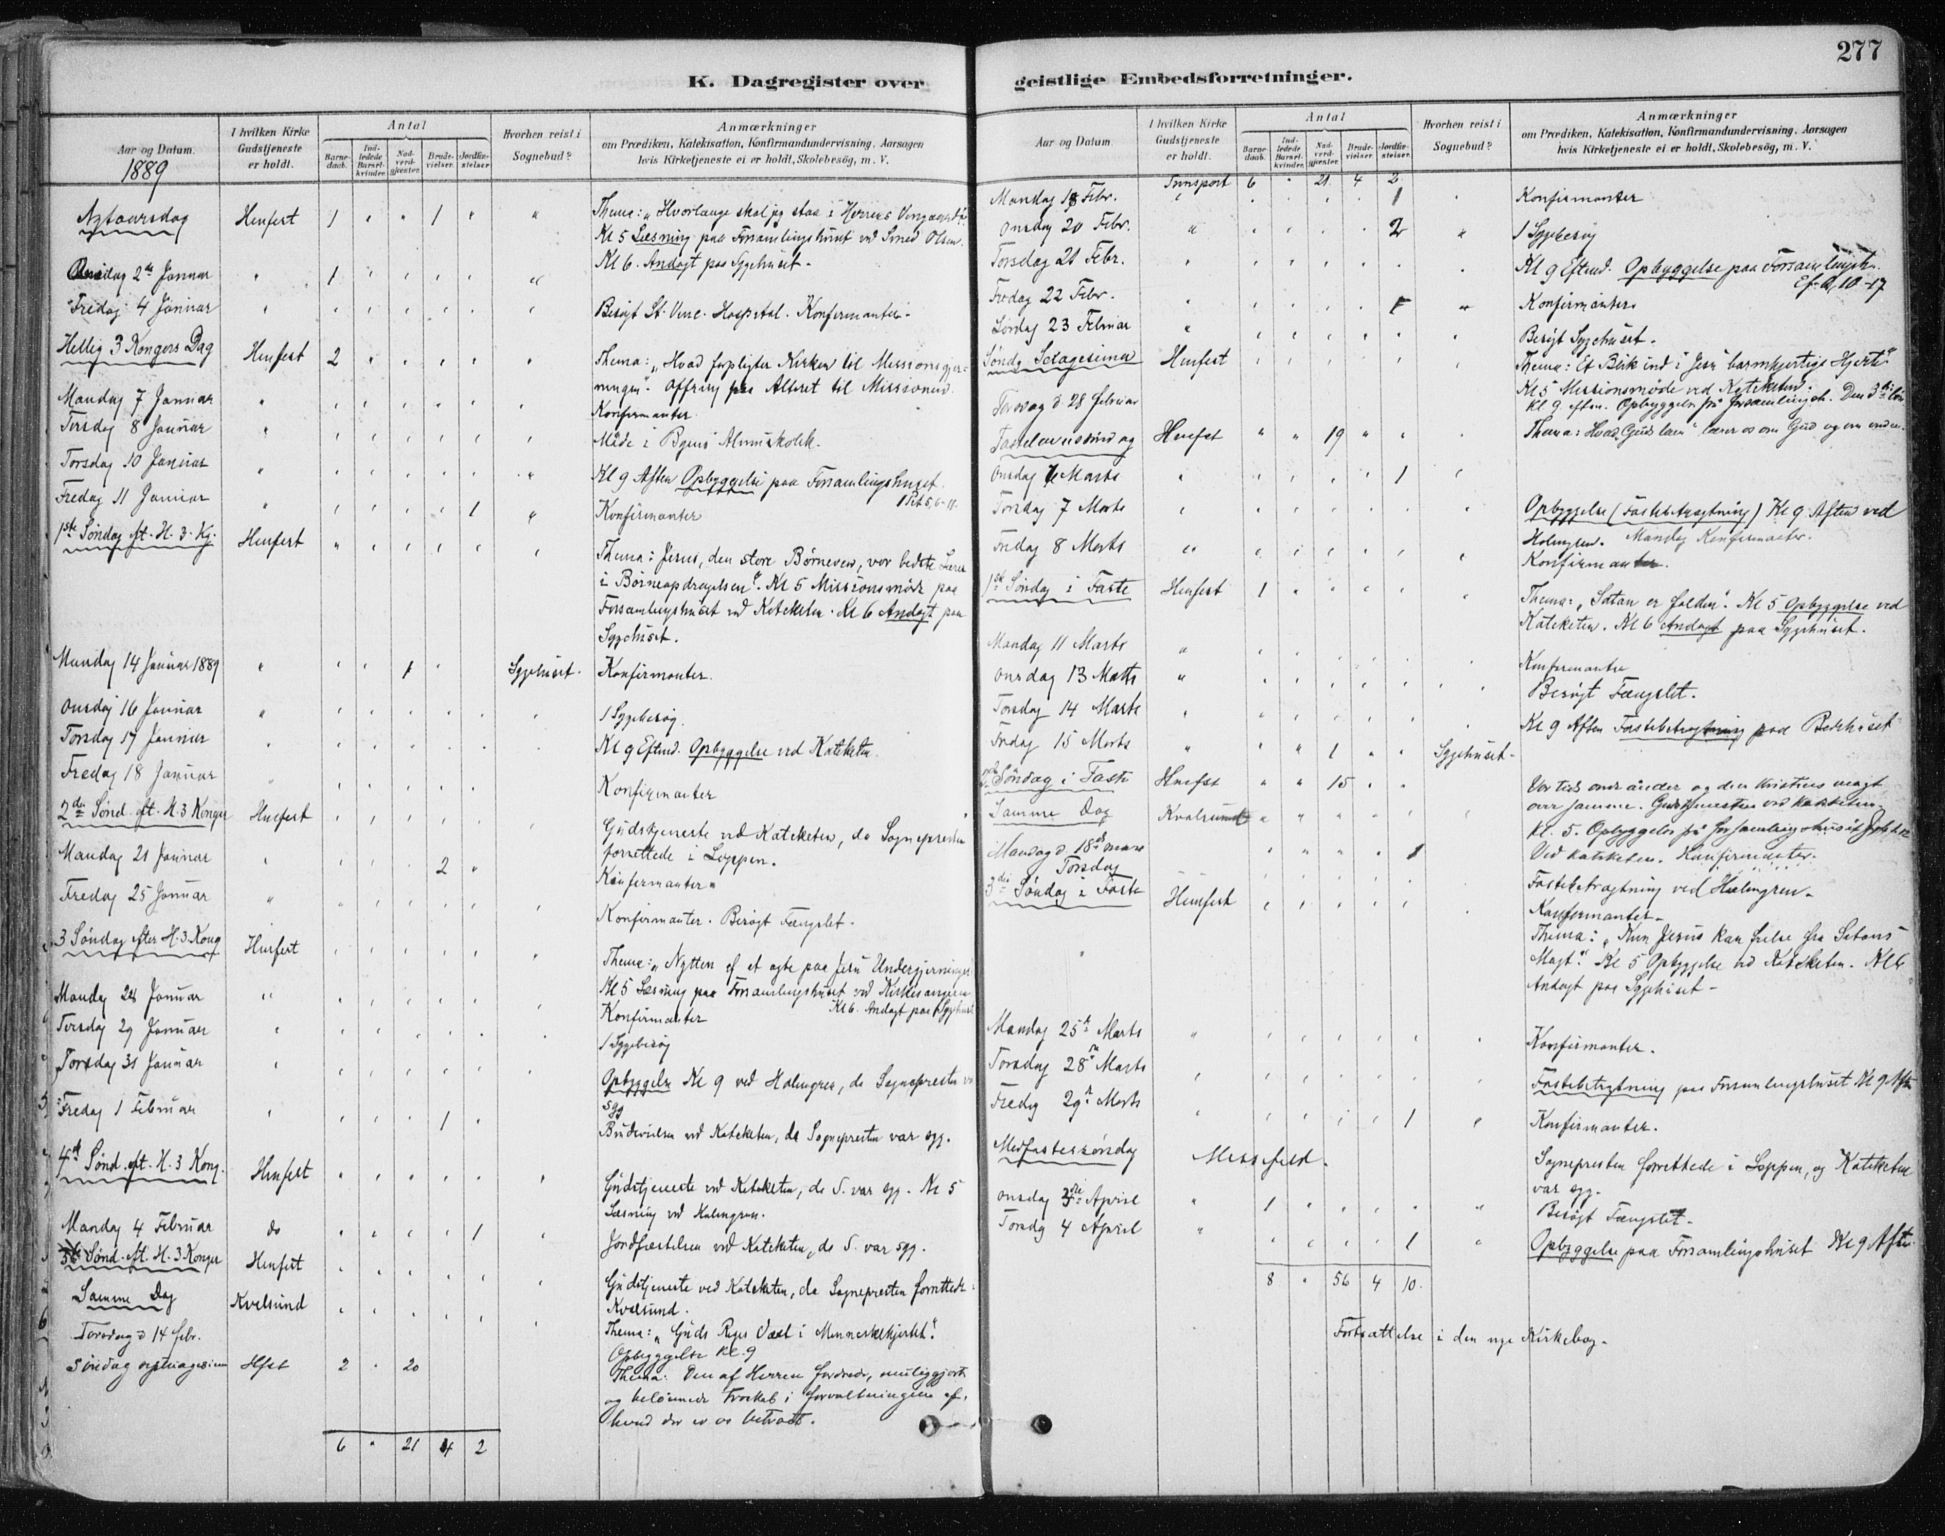 277
K. Dagregister over geistlige Embedsforretninger.
Aar og Datum.
1889
I hvilken Kirke Gudstjeneste er holdt.
Antal
Barnedaab.
Indledede Barselkvinder.
Nadverdgjester.
Brudevielser.
Jordfæstelser.
Hvorhen reist i Sognebud?
Anmærkninger
om Prædiken, Katekisation, Konfirmandundervisning, Aarsagen
hvis Kirketjeneste ei er holdt, Skolebesög, m. V.
Nytaarsdag Hmfest 1 " " 1 " " Thema: "Hvorlænge skal jeg staa i Herrens Vingaard?"
Kl 5 Læsning paa Forsamlingshuset ved Olsen.
Kl 6. Andagt paa Sygehuset.
Onsdag 2de Januar 1
Fredag 4 Januar Besøgt St. Vinc. Hospital. Konfirmanter.
Hellig 3 Kongers Dag Hmfest 2 Thema: "Hvad forpligter Kirken til Missionsgjer-
ningen". Offring paa Alteret til Missionen.
Mandag 7 Januar Konfirmanter
Tirsdag 8 Januar Møde i Byens Almueskolek.
Torsdag 10 Januar Kl 9 Aften Opbyggelse paa Forsamlingshuset.
1 Pet 5, 6-11.
Fredag 11 Januar 1 Konfirmanter
1ste Søndag eft. H. 3. Kg. Hmfest Thema: Jesus, den store Børneven, vor bedste Lærer
i Børneopdragelsen". Kl 5 Missionsmøde paa
Forsamlingshuset ved Kateketen. Kl 6 Andagt paa
Sygehuset.
Mandag 14 Januar 1889 1 Sygehuset. Konfirmanter.
Onsdag 16 Januar 1 Sygebesøg.
Torsdag 17 Januar Kl 9 Eftmd. Opbyggelse ved Kateketen.
Fredag 18 Januar Konfirmanter
2den Sønd. eft. H. 3 Konger Hmfest Gudstjeneste ved Kateketen, da Sognepresten
forrettede i Loppen.
Mandag 21 Januar 2 Konfirmanter
Fredag 25 Januar Konfirmanter. Besøgt Fængslet.
3 Søndag efter H. 3 Kong Hmfest Thema: "Nytten af at agte paa Jesu Undergjerninger.
Kl 5 Læsning paa Forsamlingshuset ved Kirkesangeren
Kl 6. Andagt paa Sygehuset
Mandag 28 Januar Konfirmanter
Tirsdag 29 Januar 1 Sygebesøg
Torsdag 31 Januar Opbyggelse Kl 9 ved Holmgren, da Sognepresten var
syg
Fredag 1 Februar 1 Brudevielsen ved Kateketen, da Sognepresten var syg.
4de Sønd. eft. H. 3 Kong. Hmfest Gudstjeneste ved Kateketen, da S. var syg. Kl 5
Læsning ved Holmgren.
Mandag 4 Februar do 1 Jordfæstelsen ved Kateketen, da S. var syg.
5te Sønd. eft. H. 3 Konger Hmfest Gudstjeneste ved Kateketen, da Sognepresten forrettede i
Kvalsund.
Samme Dag Kvalsund Thema: "Guds Riges Væxt i Menneskehjertet".
Torsdag d 14 febr. Opbyggelse kl. 9
Søndag septuagesima Hfst 2 " 20 Thema: Den af Herren fordrede, muliggjorte
og belønnede Troskab i forvaltningen af,
hvad der er os betroet.
6 " 21 4 2
Aar og Datum
I hvilken Kirke Gudstjeneste er holdt.
Antal
Barnedaab.
Indledede Barselkvinder.
Nadverdgjester.
Brudevielser.
Jordfæstelser.
Hvorhen reist i Sognebud?
Anmærkninger
om Prædiken, Katekisation, Konfirmandundervisning, Aarsagen
hvis Kirketjeneste ei er holdt, Skolebesög, m. V.
Transport 6 " 21 4 2
Mandag 18 Febr. 1 Konfirmanter
Onsdag 20 Febr. 2 1 Sygebesøg
Torsdag 21 Febr. Kl 9 Eftmd. Opbyggelse paa Forsamlingsh.
Ef. 6, 10-17
Fredag 22 Febr. 1 Konfirmanter
Lørdag 23 Februar Besøgt Sygehuset.
Søndg Sexagesima Hmfest Thema: Et Blik ind i Jesu barmhjertige Hjerte"
Kl 5 Missionsmøde ved Kateketen.
Torsdag d. 28 februar Kl 9 aften. Opbyggelse på forsamlingsh.
Fastelavnssøndag Hmfest " " 19 " " Thema: Hvad "Guds lam" lærer os om Gud og om
Onsdag 6 Marts 1
Torsdag 7 Marts Opbyggelse (Fastebetragtning) Kl 9 Aften ved
Holmgren. Mandag Konfirmanter.
Fredag 8 Marts Konfirmanter.
1ste Søndag i Faste Hmfest 1 Thema: "Satan er falden". Kl 5 Opbyggelse ved
Kateketen. Kl 6 Andagt paa Sygehuset.
Mandag 11 Marts Konfirmanter
Onsdag 13 Marts Besøgt Fængslet.
Torsdag 14 Marts Kl 9 Aften Fastebetragtning paa Bedehuset
Fredag 15 Marts 1 Sygehuset
2den Søndag i Faste Hmfst " " 15 Vor tids onde ånder og den kristnes magt
over samme. Gudstjenesten ved kateketen.
Samme Dag Kvalsund kl. 5. Opbyggelse på forsamlingshuset
Mandag d. 18de mars 1 Ved kateketen. Konfirmanter.
Torsdag Fastebetragtning ved Holmgren.
Konfirmanter.
3die Søndag i Faste Hmfest Thema: "Kun Jesus kan frelse fra Satans
Magt". Kl 5 Opbyggelse ved Kateketen. Kl 6
Andagt paa Sygehuset.
Mandag 25de Marts Konfirmanter.
Torsdag 28de Marts Fastebetragtning paa Forsamlingshuset Kl 9 Aften
Fredag 29de Marts 1 Konfirmanter.
Midfastesøndag Messefald. Sognepresten forrettede i Loppen, og Kateketen
var syg.
Onsdag 3die April 1 Besøgt Fængslet.
Torsdag 4 April 1 Opbyggelse paa Forsamlingshuset Kl 9 Aften
8 " 56 4 10.
Fortsættelse i den nye Kirkebog.